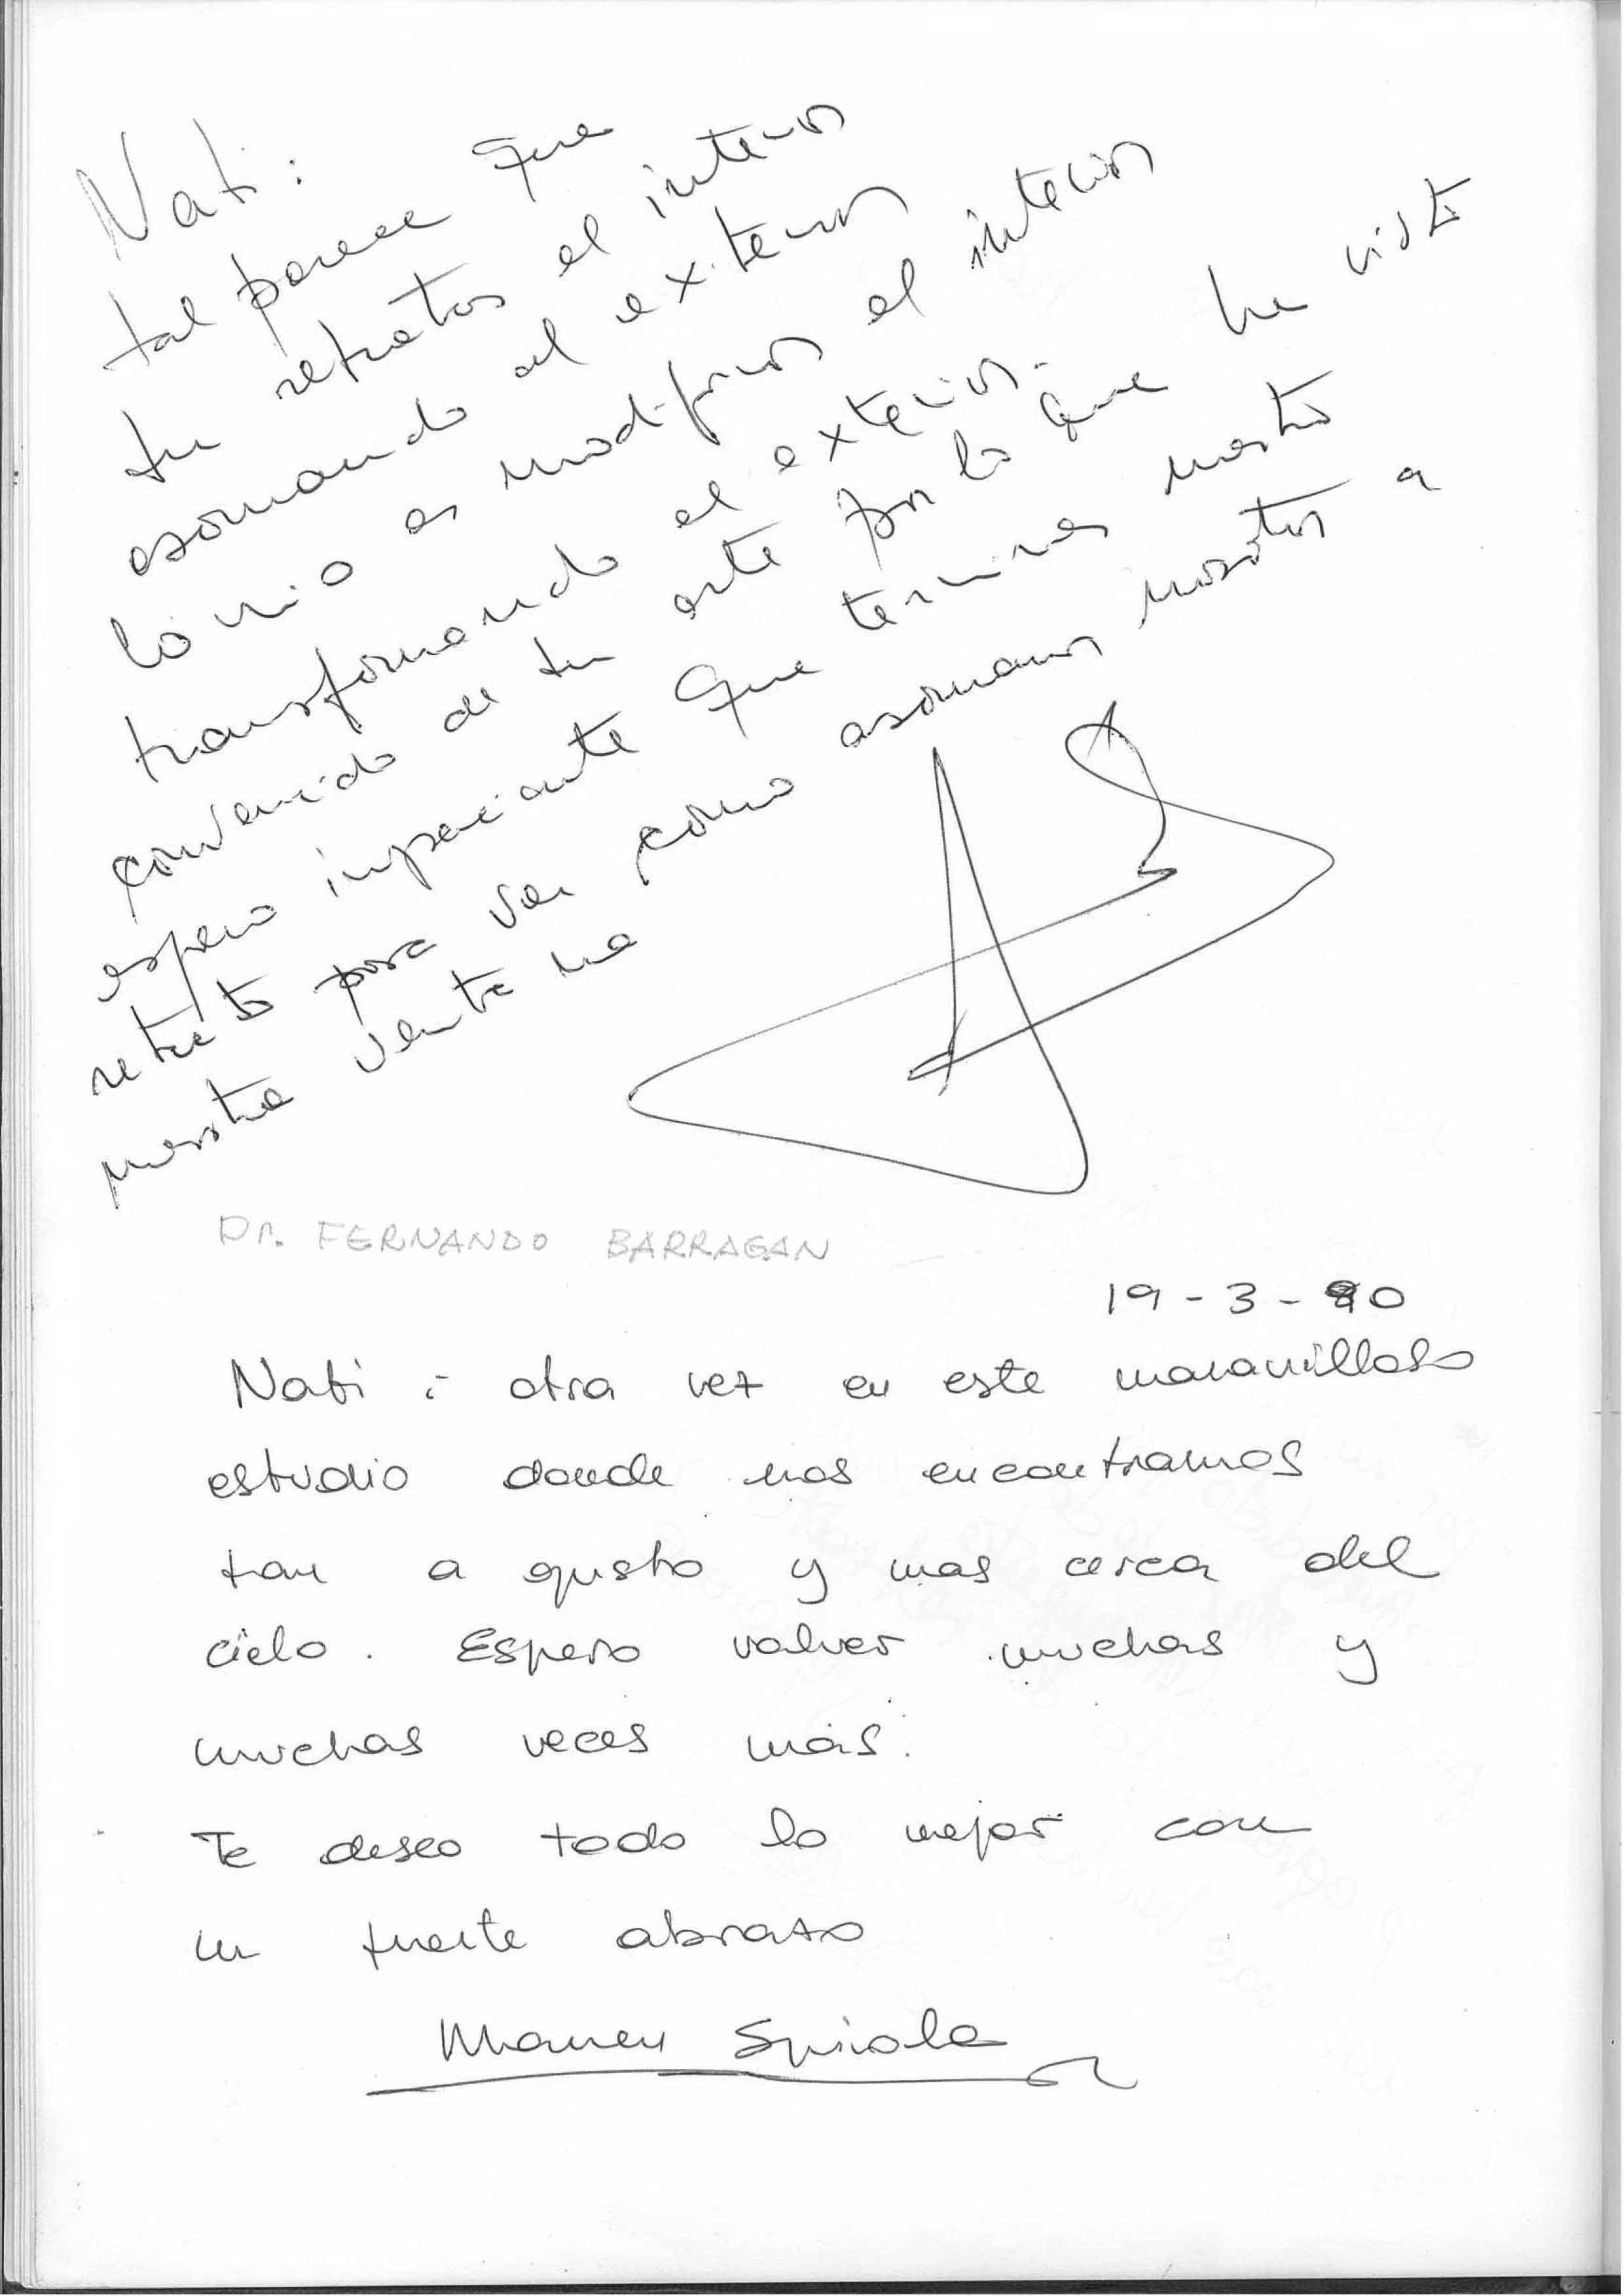 Nati:
tal parece que
tu retratas el interior
asomando al exterior
lo mio es modificar el interior
transformando el exterior.
convencido de tu arte por lo que he visto
espero impaciente que termines nuestro
retrato para ver como asomamos nosotros a
nuestra ventana
Dr. FERNANDO BARRAGAN
19-3-90
Nati: otra vez en este maravilloso
estudio donde nos encontramos
tan a gusto y mas cerca del
cielo. Espero volver muchas y
muchas veces más.
Te deseo todo lo mejor con
un fuerte abrazo
Spinola